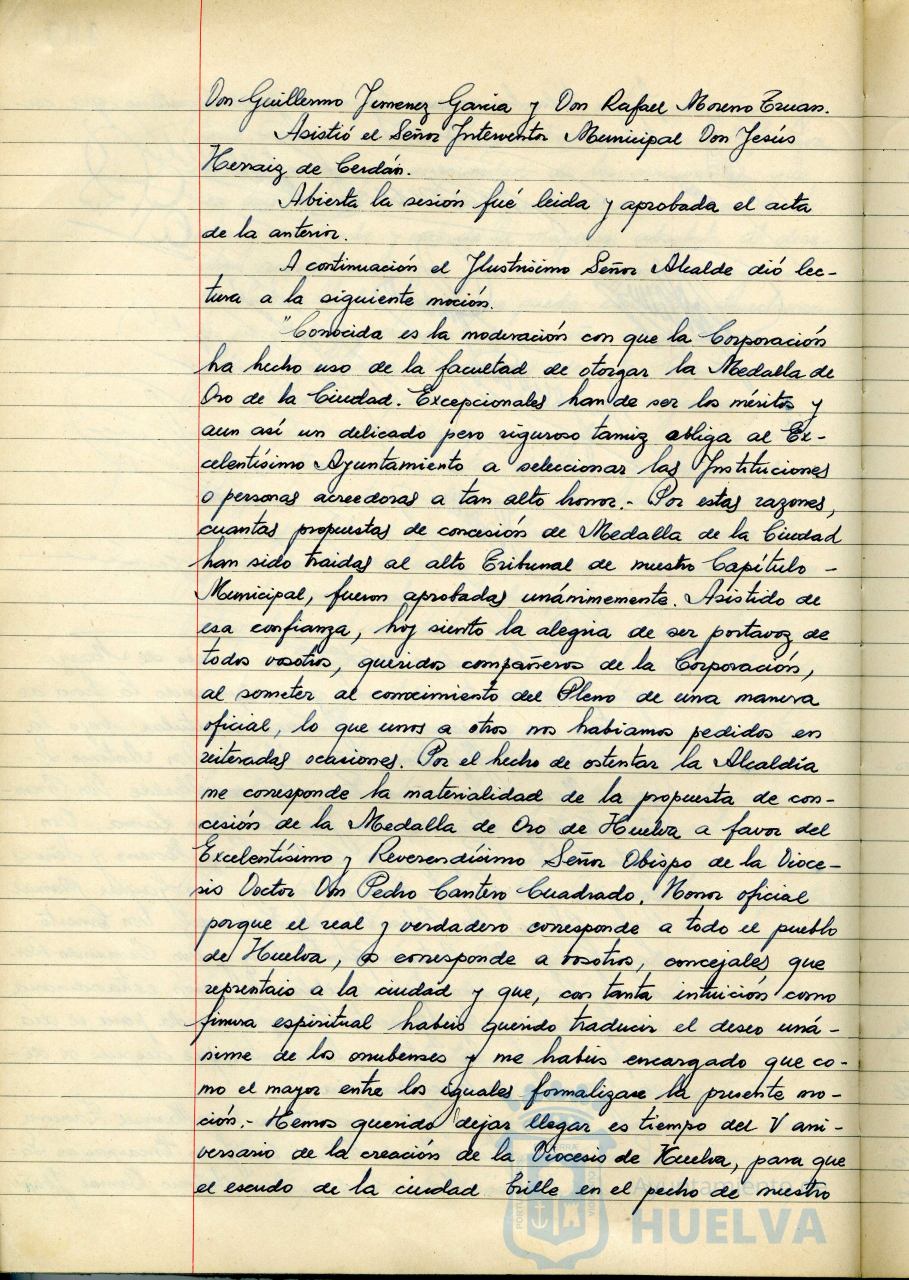 Don Guillermo Jimenez Garcia y Don Rafael Moreno Truan.
Asistió el Señor Interventor Municipal Don Jesús
Herraiz de Cerdán.
Abierta la sesión fué leida y aprobada el acta
de la anterior.
A continuación el Ilustrisimo Señor Alcalde dió lec-
tura a la siguiente moción.
"Conocida es la moderación con que la Corporación
ha hecho uso de la facultad de otorgar la Medalla de
Oro de la Ciudad. Excepcionales han de ser los méritos y
aun así un delicado pero riguroso tamiz obliga al Ex-
celentísimo Ayuntamiento a seleccionar las Instituciones
o personas acreedoras a tan alto honor.- Por estas razones,
cuantas propuestas de concesión de Medalla de la Ciudad
han sido traidas al alto Tribunal de nuestro Capítulo -
Municipal, fueron aprobadas unánimemente. Asistido de
esa confianza, hoy siento la alegria de ser portavoz de
todos vosotros, queridos compañeros de la Corporación,
al someter al conocimiento del Pleno de una manera
oficial, lo que unos a otros nos habiamos pedidos en
reiteradas ocasiones. Por el hecho de ostentar la Alcaldía
me corresponde la materialidad de la propuesta de con-
cesión de la Medalla de Oro de Huelva a favor del
Excelentísimo y Reverendísimo Señor Obispo de la Dioce-
sis Doctor Don Pedro Cantero Cuadrado. Honor oficial
porque el real y verdadero corresponde a todo el pueblo
de Huelva, os corresponde a vosotros, concejales que
reprentais a la ciudad y que, con tanta intuición como
finura espiritual habeis querido traducir el deseo uná-
nime de los onubenses y me habeis encargado que co-
mo el mayor entre los iguales formalizase la presente mo-
ción.- Hemos querido dejar llegar es tiempo del V ani-
versario de la creación de la Diocesis de Huelva, para que
el escudo de la ciudad brille en el pecho de nuestro
Ayuntamiento de
HUELVA